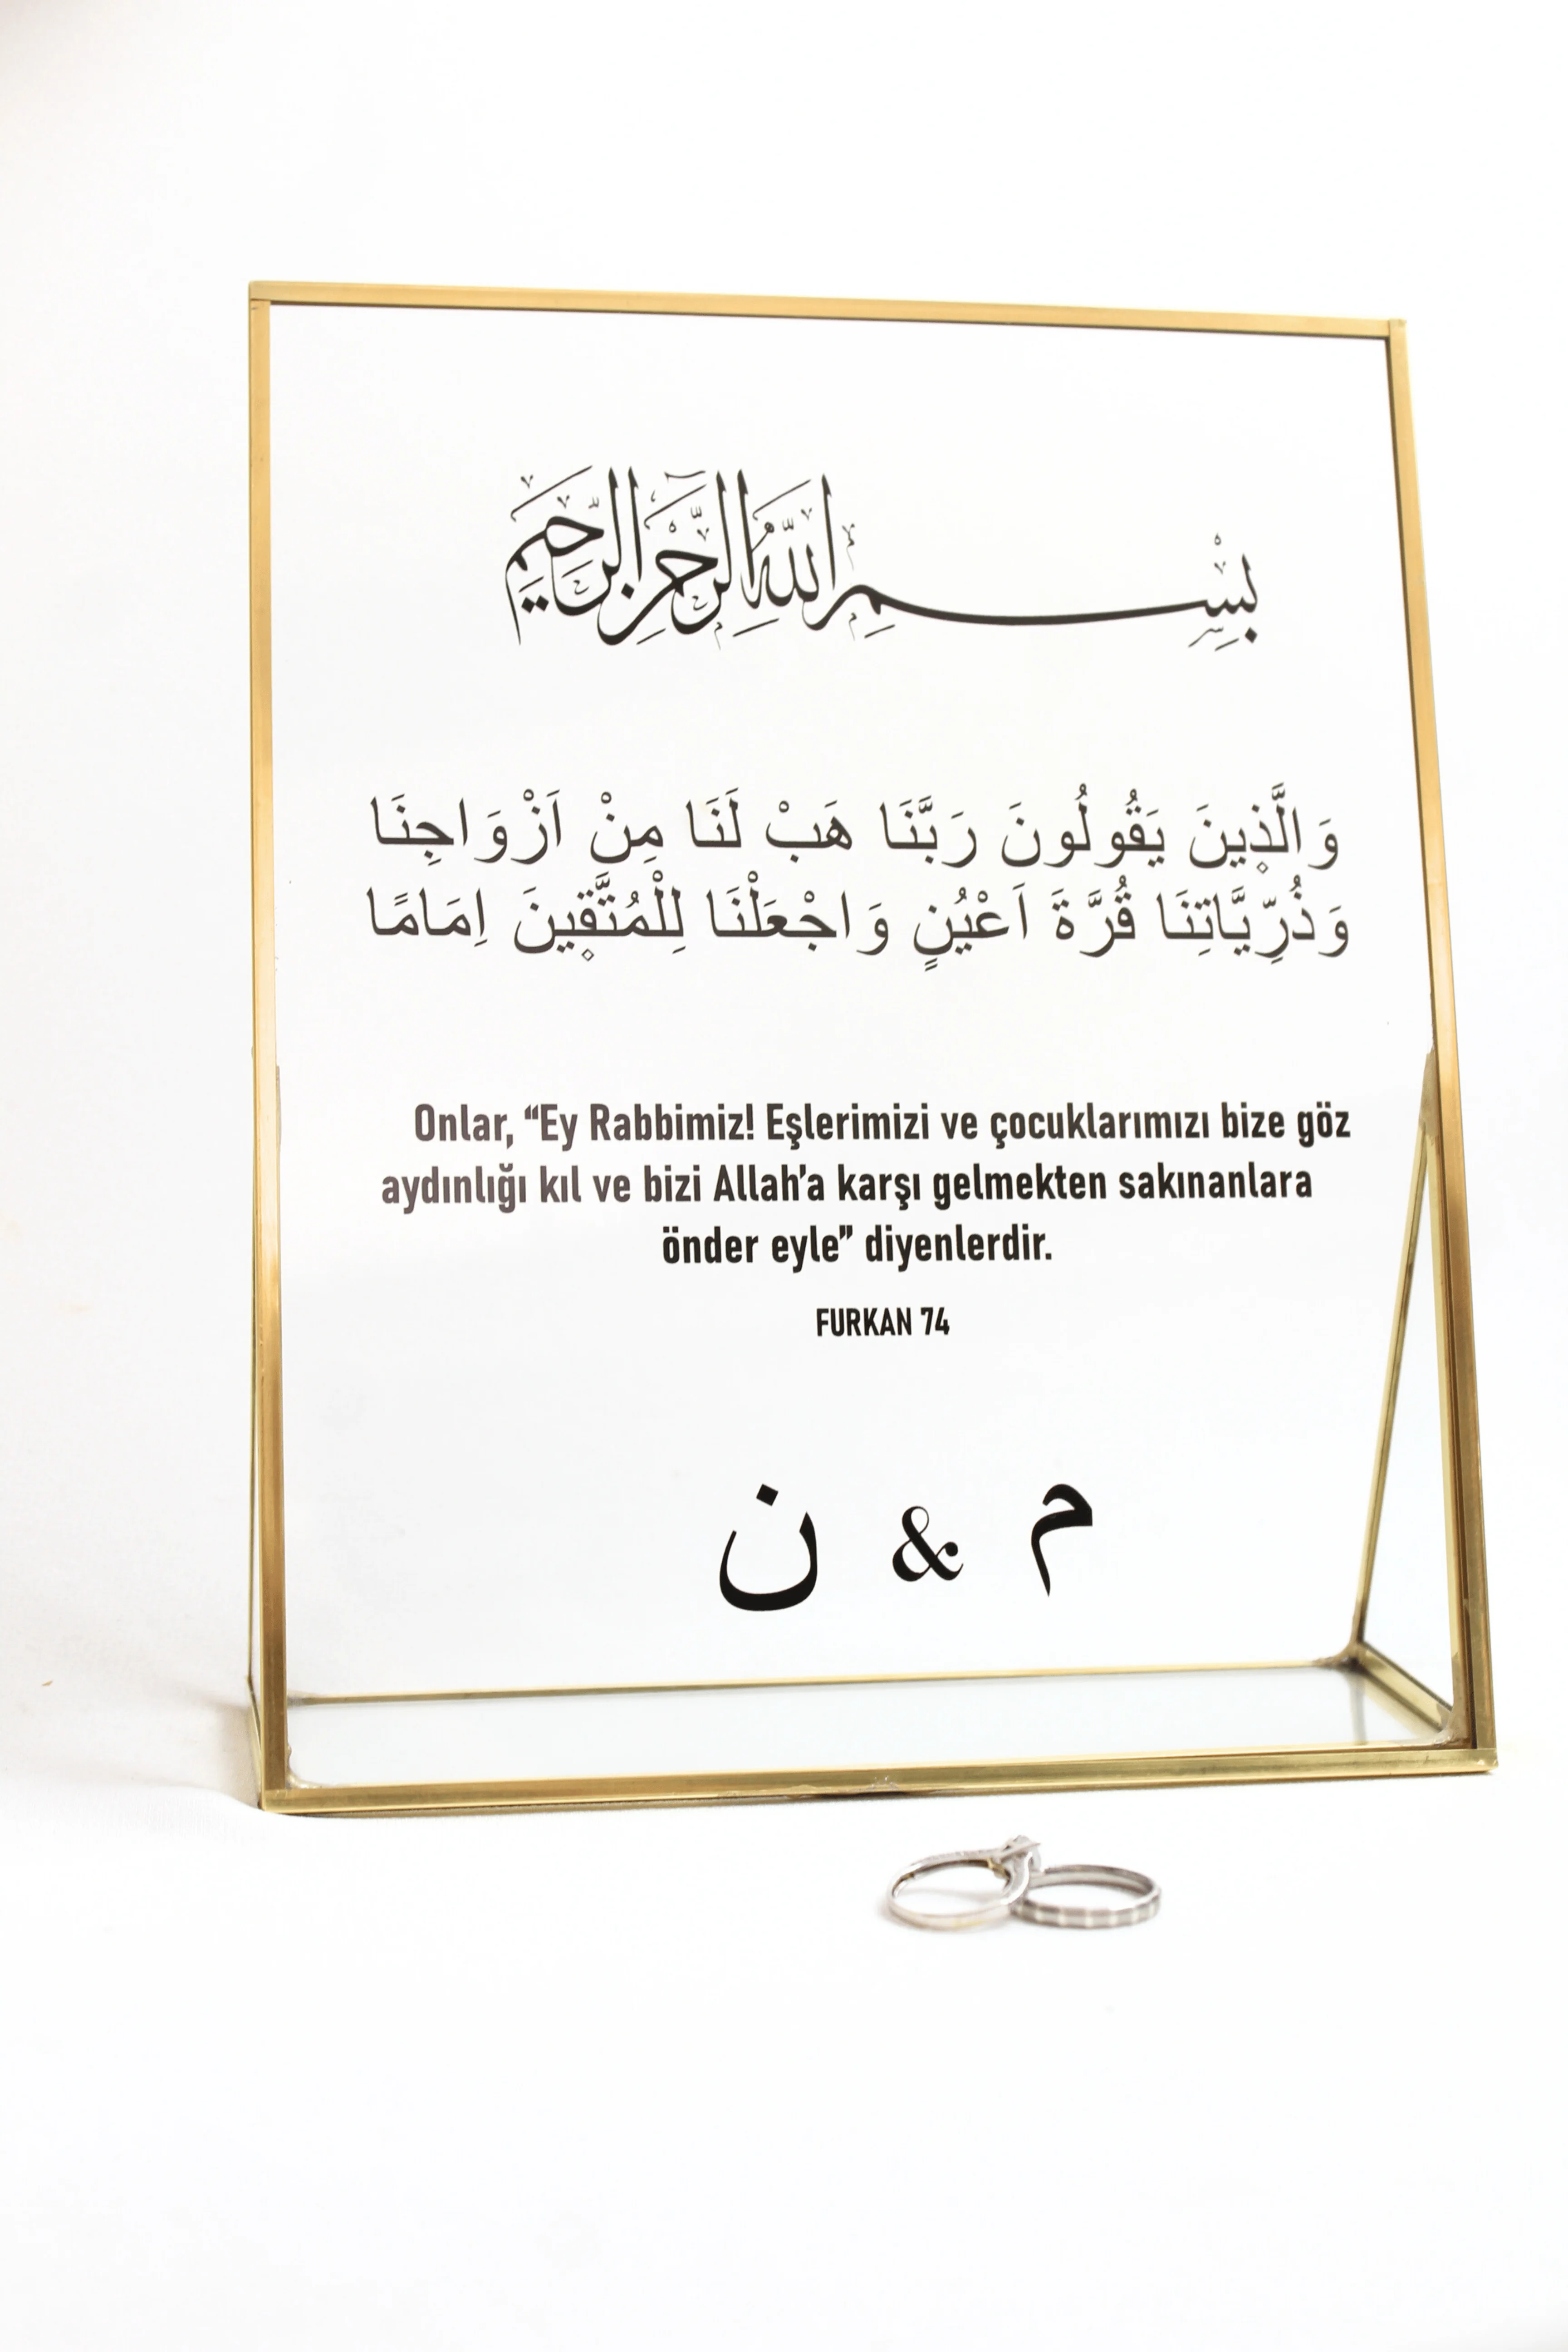 بِسْمِ اللّٰهِ الرَّحْمٰنِ الرَّحِيمِ
وَالَّذ۪ينَ يَقُولُونَ رَبَّنَا هَبْ لَنَا مِنْ اَزْوَاجِنَا
وَذُرِّيَّاتِنَا قُرَّةَ اَعْيُنٍ وَاجْعَلْنَا لِلْمُتَّق۪ينَ اِمَامًا
Onlar, “Ey Rabbimiz! Eşlerimizi ve çocuklarımızı bize göz
aydınlığı kıl ve bizi Allah’a karşı gelmekten sakınanlara
önder eyle” diyenlerdir.
FURKAN 74
م & ن